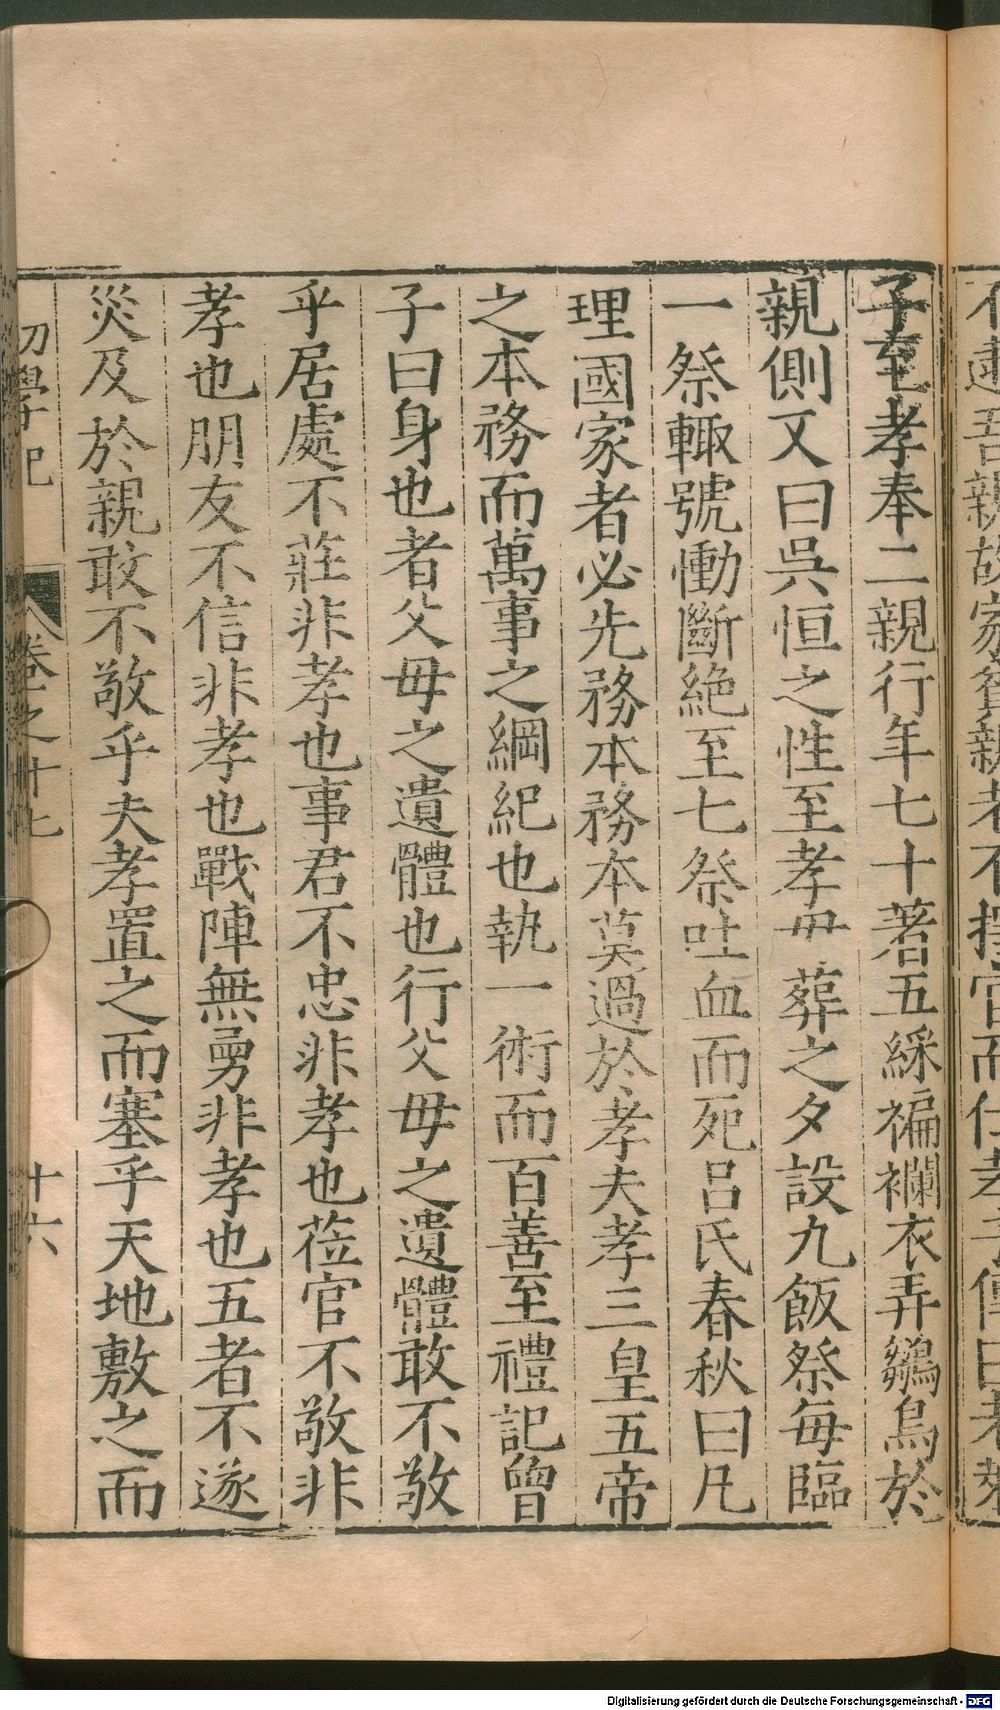 不逮吾親故家貧親老不擇官而仕孝子傳曰老萊
子至孝奉二親行年七十著五綵褊襴衣弄鶵鳥於
親側又曰吳恒之性至孝母葬之夕設九飯祭每臨
一祭輙號慟斷絶至七祭吐血而死呂氏春秋曰凡
理國家者必先務本務本莫過於孝夫孝三皇五帝
之本務而萬事之綱紀也執一術而百善至禮記曾
子曰身也者父母之遺體也行父母之遺體敢不敬
乎居處不莊非孝也事君不忠非孝也莅官不敬非
孝也朋友不信非孝也戰陣無勇非孝也五者不遂
災及於親敢不敬乎夫孝置之而塞乎天地敷之而
初學記 卷之十七 十六
Digitalisierung gefördert durch die Deutsche Forschungsgemeinschaft - DFG